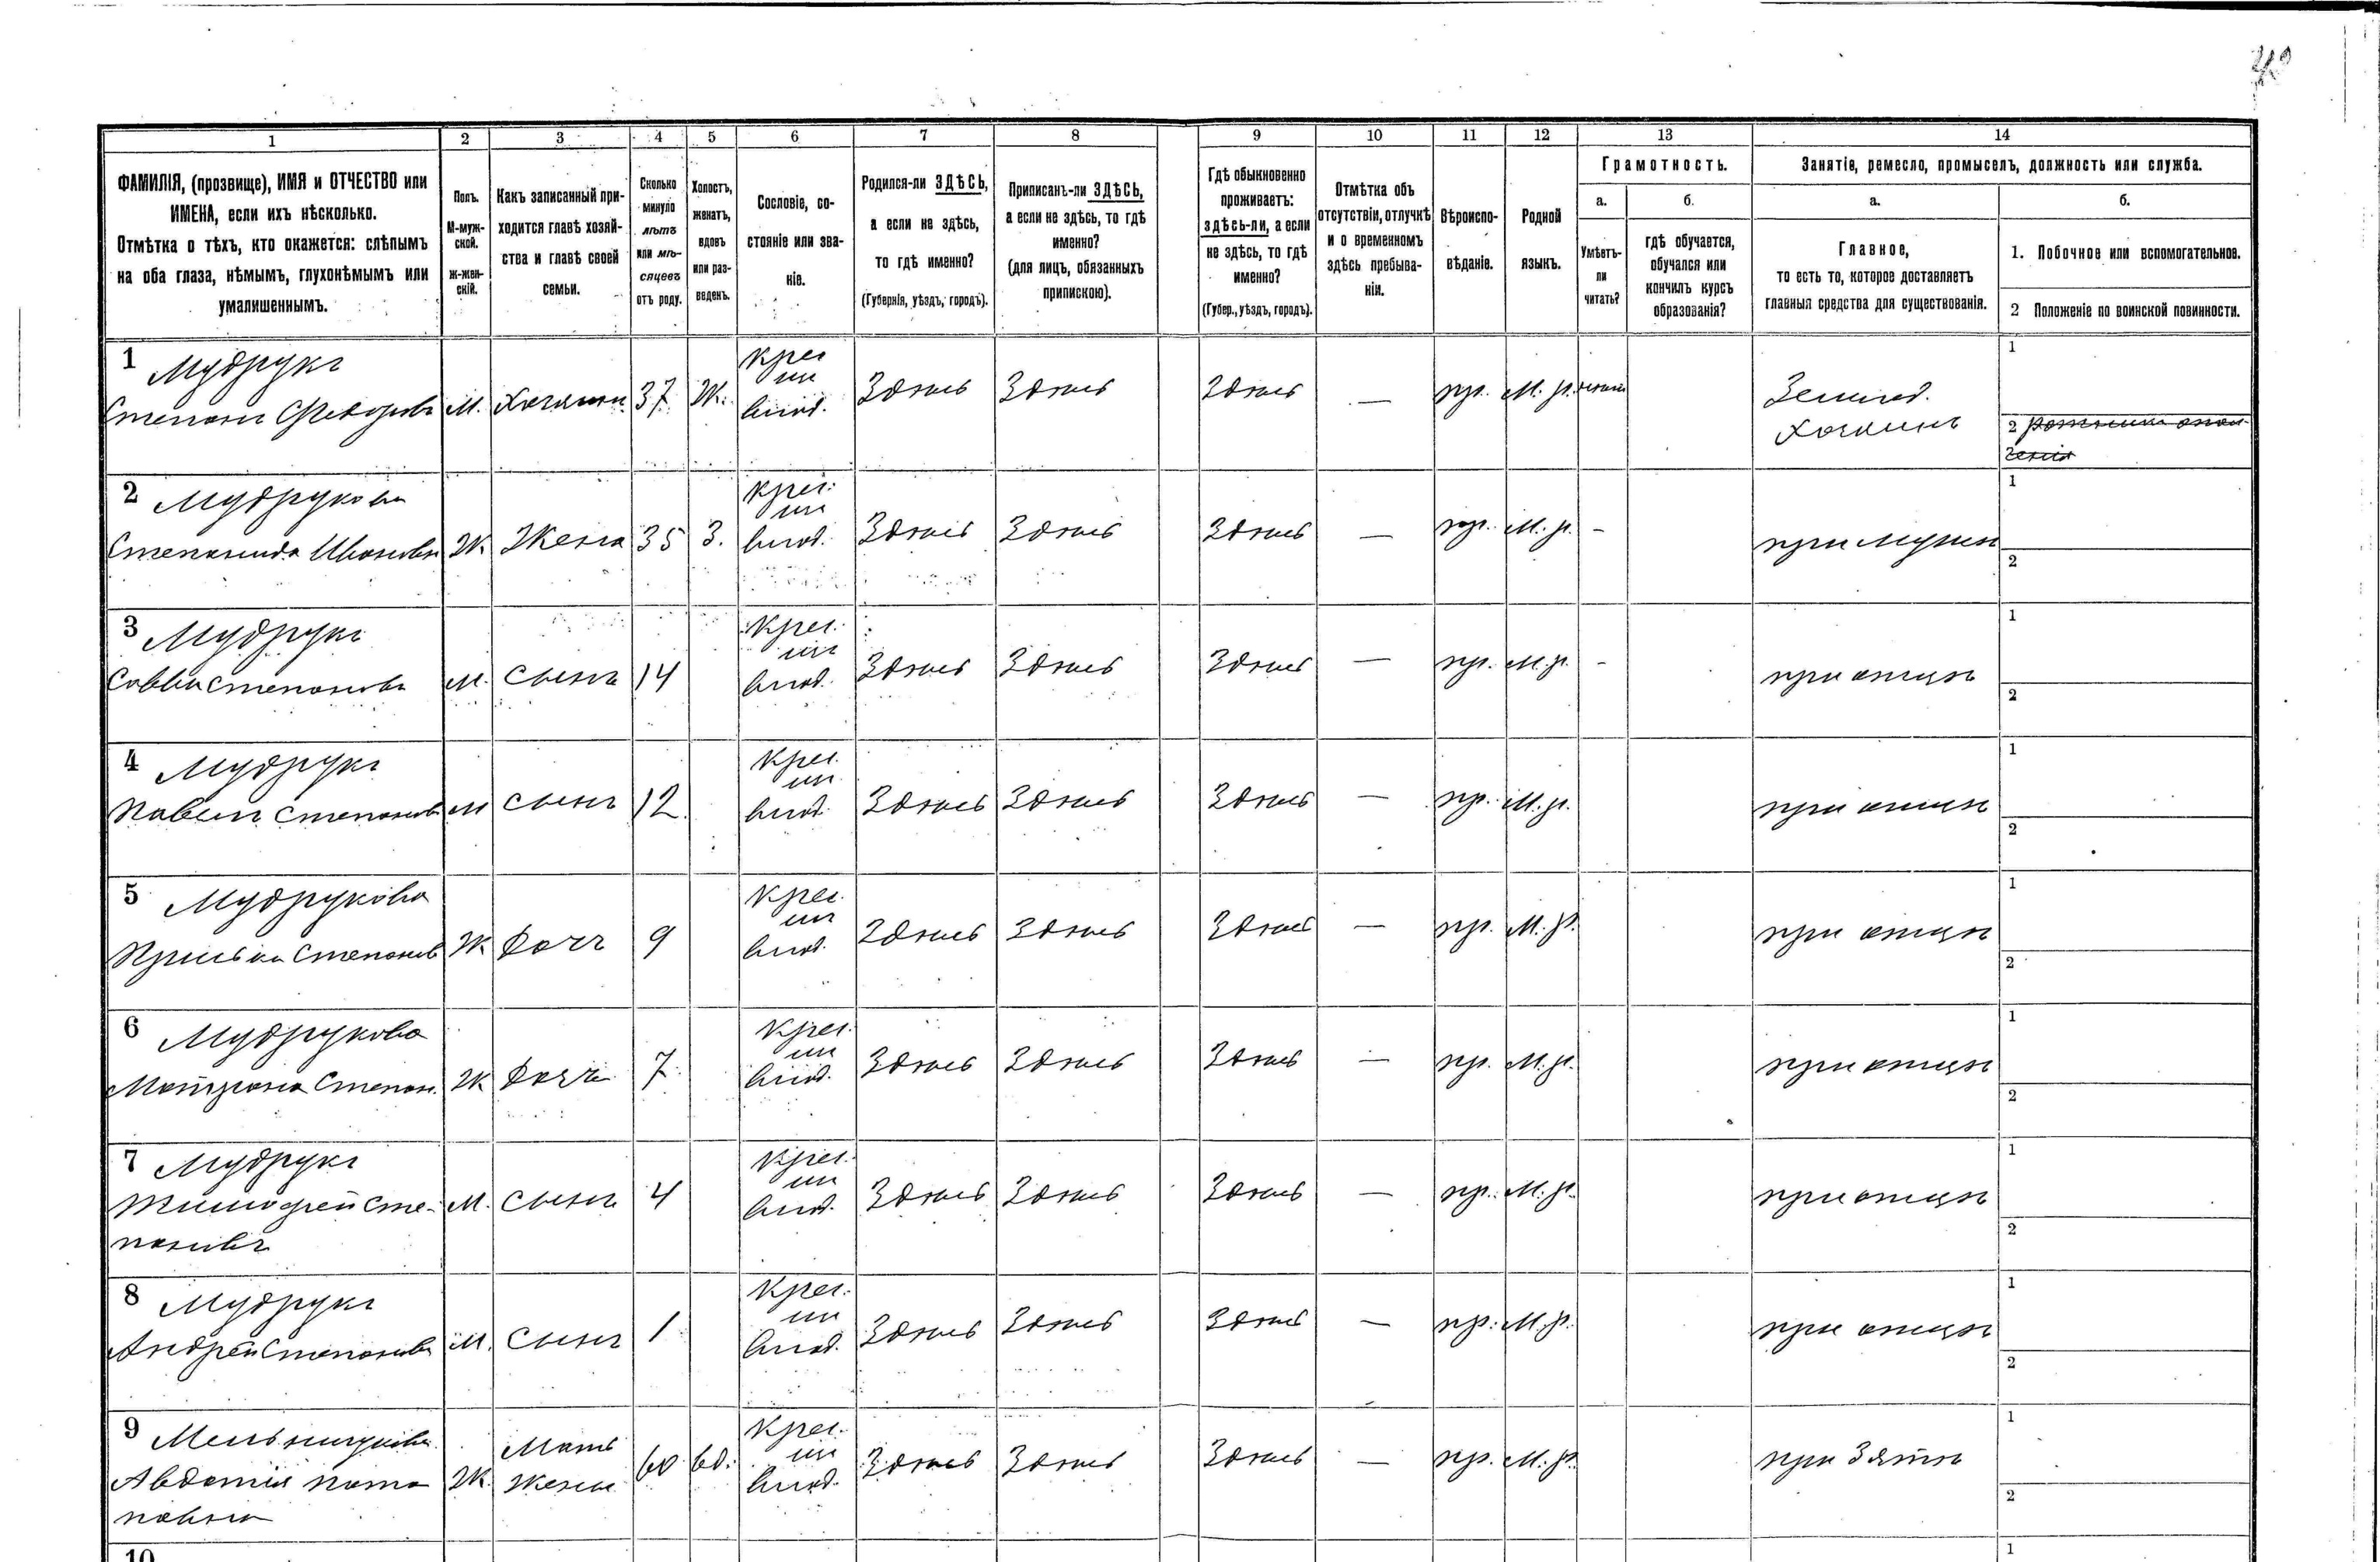 1 2 3 4 5 6 7 8 9 10 11 12 13 14
ФАМИЛІЯ, (прозвище), ИМЯ и ОТЧЕСТВО или
ИМЕНА, если ихъ нѣсколько.
Отмѣтка о тѣхъ, кто окажется: слѣпымъ
на оба глаза, нѣмымъ, глухонѣмымъ или
умалишеннымъ.
Полъ.
М-муж-
ской.
ж-жен-
скій.
Какъ записанный при-
ходится главѣ хозяй-
ства и главѣ своей
семьи.
Сколько
минуло
лѣтъ
или мѣ-
сяцевъ
отъ роду.
Холостъ,
женатъ,
вдовъ
или раз-
веденъ.
Сословіе, со-
стояніе или зва-
ніе.
Родился-ли ЗДѢСЬ,
а если не здѣсь,
то гдѣ именно?
(Губернія, уѣздъ, городъ).
Приписанъ-ли ЗДѢСЬ,
а если не здѣсь, то гдѣ
именно?
(для лицъ, обязанныхъ
припискою).
Гдѣ обыкновенно
проживаетъ:
здѣсь-ли, а если
не здѣсь, то гдѣ
именно?
(Губер., уѣздъ, городъ).
Отмѣтка объ
отсутствіи, отлучкѣ
и о временномъ
здѣсь пребыва-
ніи.
Вѣроиспо-
вѣданіе.
Родной
языкъ.
Грамотность.
а.
Умѣетъ-
ли
читать?
б.
гдѣ обучается,
обучался или
кончилъ курсъ
образованія?
Занятія, ремесло, промыселъ, должность или служба.
а.
Главное,
то есть то, которое доставляетъ
главныя средства для существованія.
б.
1. Побочное или вспомогательное.
2 Положеніе по воинской повинности.
1 Мудрукъ
Степанъ Федоровъ М. Хозяинъ 37 Ж.
Крес
из
влад.
Здѣсь Здѣсь Здѣсь — пр. М. р.
Землед.
Хозяинъ
1
2 ратникъ опол-
ченія
2 Мудрукова
Степанида Иванова Ж Жена 35 З.
Крес.
из
влад.
Здѣсь Здѣсь Здѣсь — пр. М. р. - при мужѣ
1
2
3 Мудрукъ
Савва Степановъ М. Сынъ 14
Крес.
из
влад.
Здѣсь Здѣсь Здѣсь — пр. М. р. - при отцѣ
1
2
4 Мудрукъ
Павелъ Степановъ М Сынъ 12
Крес.
из
влад.
Здѣсь Здѣсь Здѣсь — пр. М. р. при отцѣ
1
2
5 Мудрукова
Степанов Ж Дочь 9
Крес.
из
влад.
Здѣсь Здѣсь Здѣсь — пр. М. р. при отцѣ
1
2
6 Мудрукова
Матрона Степан. Ж Дочь 7
Крес.
из
влад.
Здѣсь Здѣсь Здѣсь — пр. М. р. при отцѣ
1
2
7 Мудрукъ
Тимофей Сте-
пановъ
М. Сынъ 4
Крес.
из
влад.
Здѣсь Здѣсь Здѣсь — пр. М. р. при отцѣ
1
2
8 Мудрукъ
Андрей Степановъ М. Сынъ 1
Крес.
из
влад.
Здѣсь Здѣсь Здѣсь — пр. М. р. при отцѣ
1
2
9 Мельничукова
Авдотия Пота
повна
Ж.
Мать
жены
60 вд.
Крес.
из
влад.
Здѣсь Здѣсь Здѣсь — пр. М. р. при зятѣ
1
2
10
1